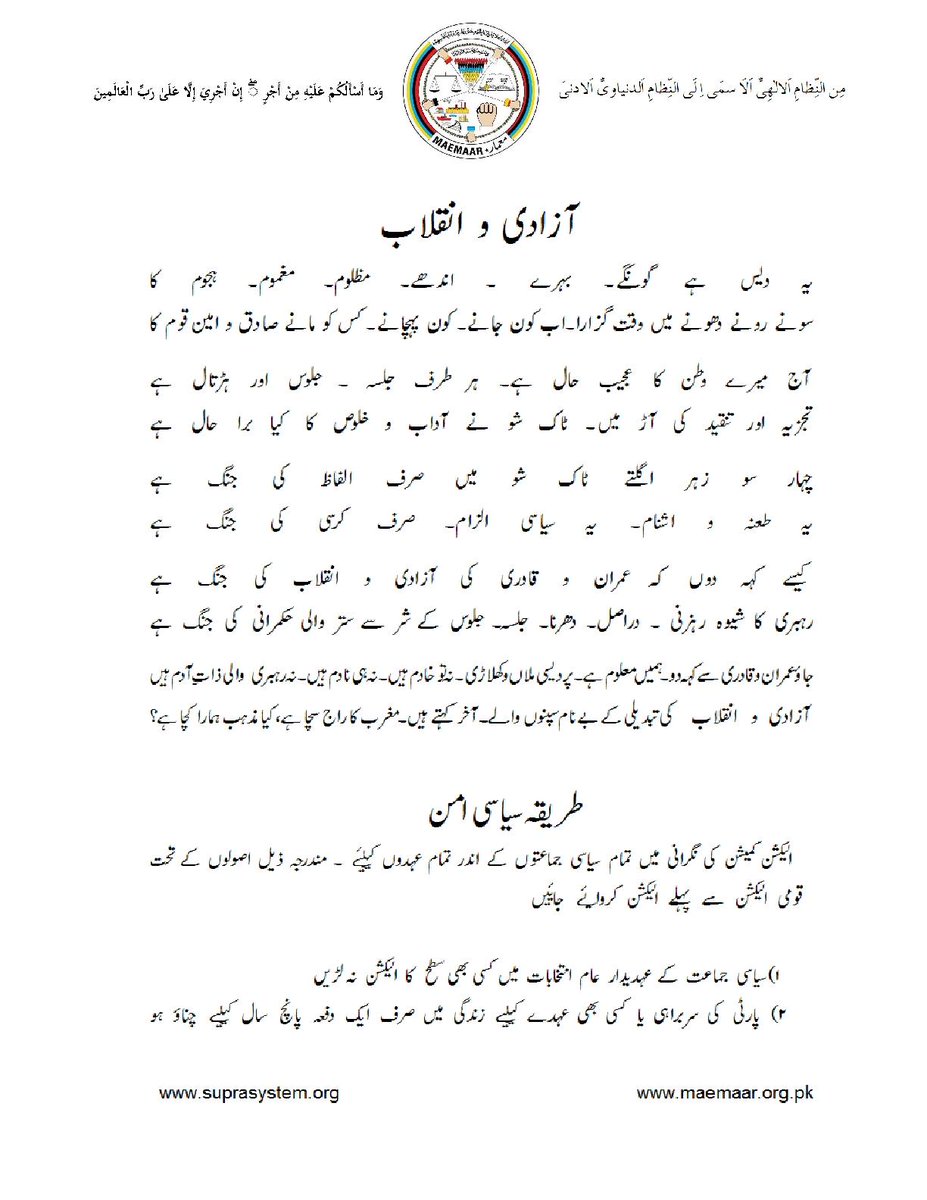 مِن النِّظامِ اَلالٰهِیِّ اَلَا سمَی اِلَی النِّظامِ اَلدنیاویِّ اَلادنیَ
وَمَا أَسْأَلُكُمْ عَلَيْهِ مِنْ أَجْرٍ ۖ إِنْ أَجْرِيَ إِلَّا عَلَىٰ رَبِّ الْعَالَمِينَ
MAEMAAR معمار
آزادی و انقلاب
یہ دیس ہے گونگے۔ بہرے ۔ اندھے۔ مظلوم۔ مغموم۔ ہجوم کا
سونے رونے دھونے میں وقت گزارا۔اب کون جانے۔کون پہچانے۔کس کو مانے صادق و امین قوم کا
آج میرے وطن کا عجیب حال ہے۔ ہر طرف جلسہ ۔ جلوس اور ہڑتال ہے
تجزیہ اور تنقید کی آڑ میں۔ ٹاک شو نے آداب و خلوص کا کیا برا حال ہے
چہار سو زہر اگلتے ٹاک شو میں صرف الفاظ کی جنگ ہے
یہ طعنہ و اشنام۔ یہ سیاسی الزام۔ صرف کرسی کی جنگ ہے
کیسے کہہ دوں کہ عمران و قادری کی آزادی و انقلاب کی جنگ ہے
رہبری کا شیوہ رہزنی ۔ دراصل۔ دھرنا۔ جلسہ۔ جلوس کے شر سے ستر والی حکمرانی کی جنگ ہے
جاؤ عمران و قادری سے کہہ دو۔ہمیں معلوم ہے۔پردیسی ملاں و کھلاڑی۔نہ تو خادم ہیں۔نہ ہی نادم ہیں۔نہ رہبری والی ذاتِ آدم ہیں
آزادی و انقلاب کی تبدیلی کے بے نام سپنوں والے۔آخر کہتے ہیں۔مغرب کا راج سچا ہے، کیا مذہب ہمارا کچا ہے؟
طریقہ سیاسی امن
الیکشن کمیشن کی نگرانی میں تمام سیاسی جماعتوں کے اندر تمام عہدوں کیلئے ۔ مندرجہ ذیل اصولوں کے تحت
قومی الیکشن سے پہلے الیکشن کروائے جائیں
۱) سیاسی جماعت کے عہدیدار عام انتخابات میں کسی بھی سطح کا الیکشن نہ لڑیں
۲) پارٹی کی سربراہی یا کسی بھی عہدے کیلئے زندگی میں صرف ایک دفعہ پانچ سال کیلئے چناؤ ہو
www.suprasystem.org www.maemaar.org.pk